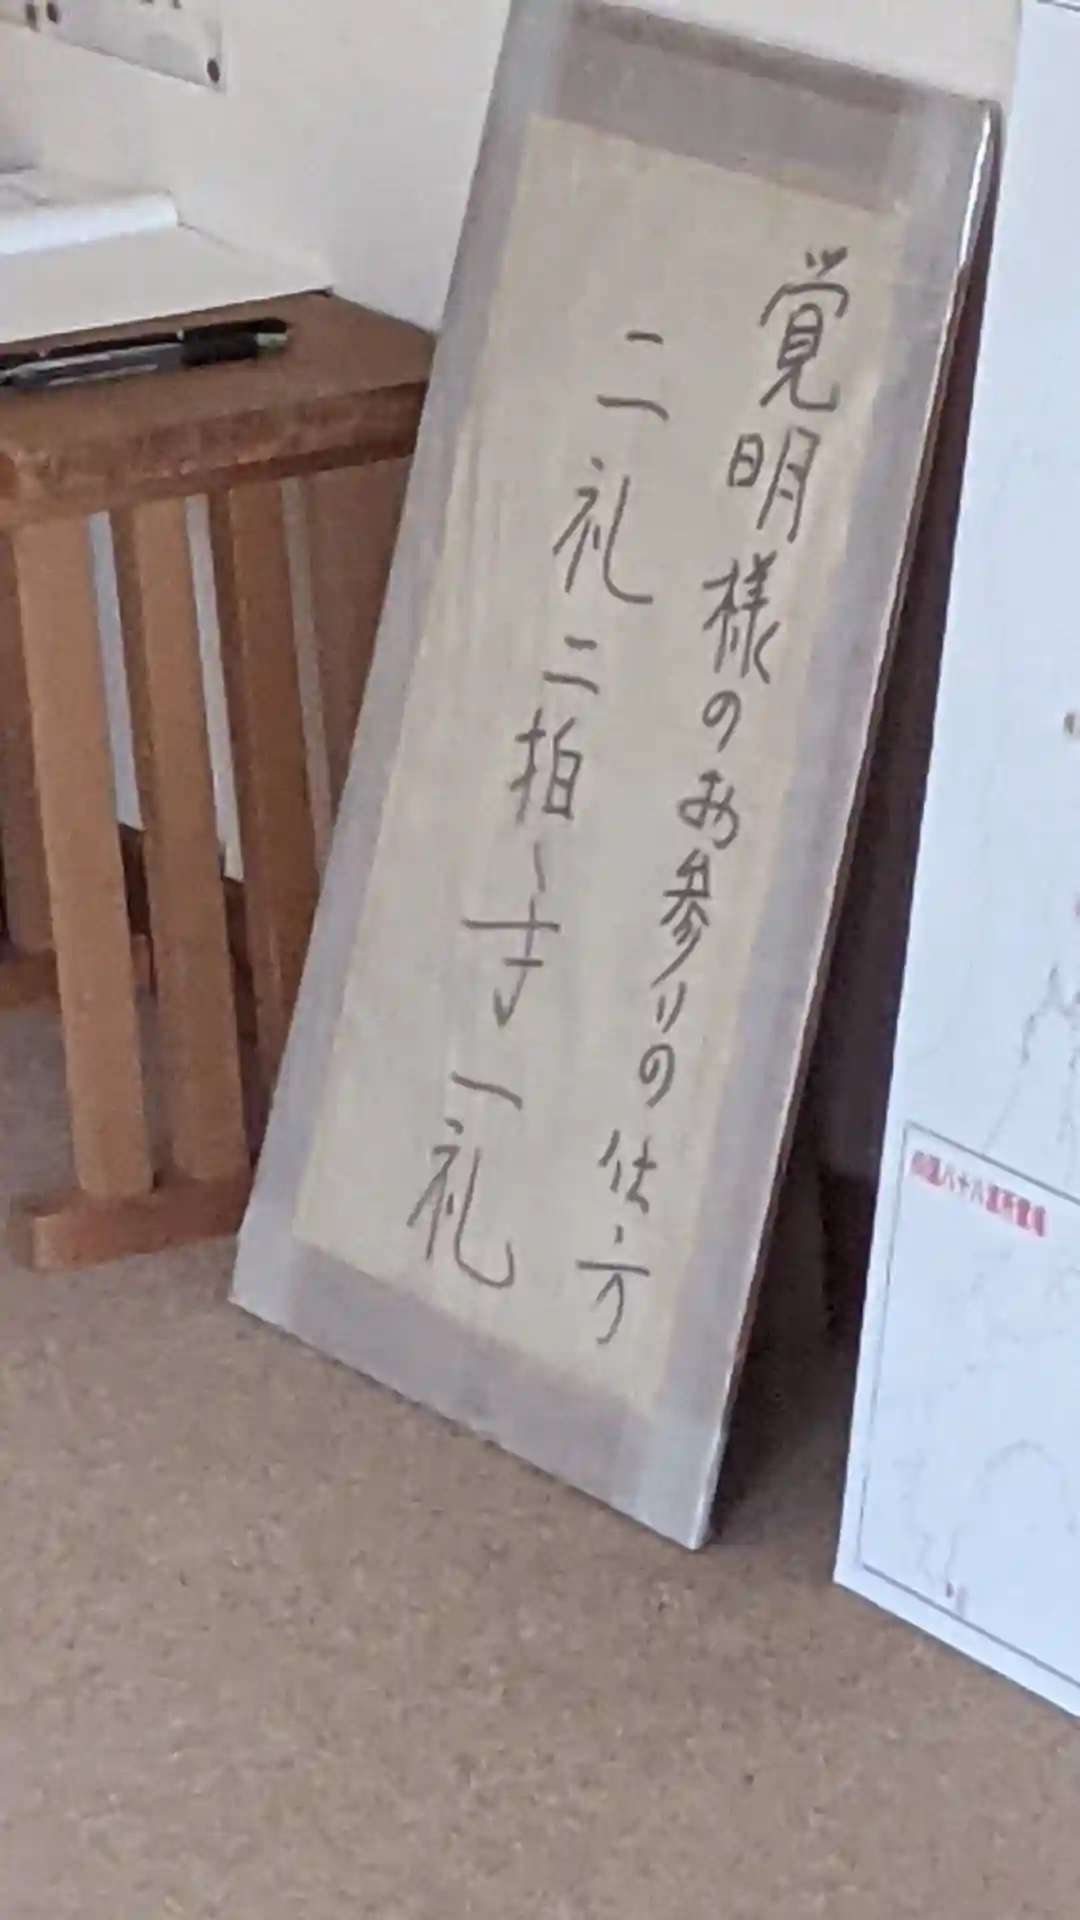 覚明様のお参りの仕方
二礼二拍手一礼
四国八十八箇所霊場